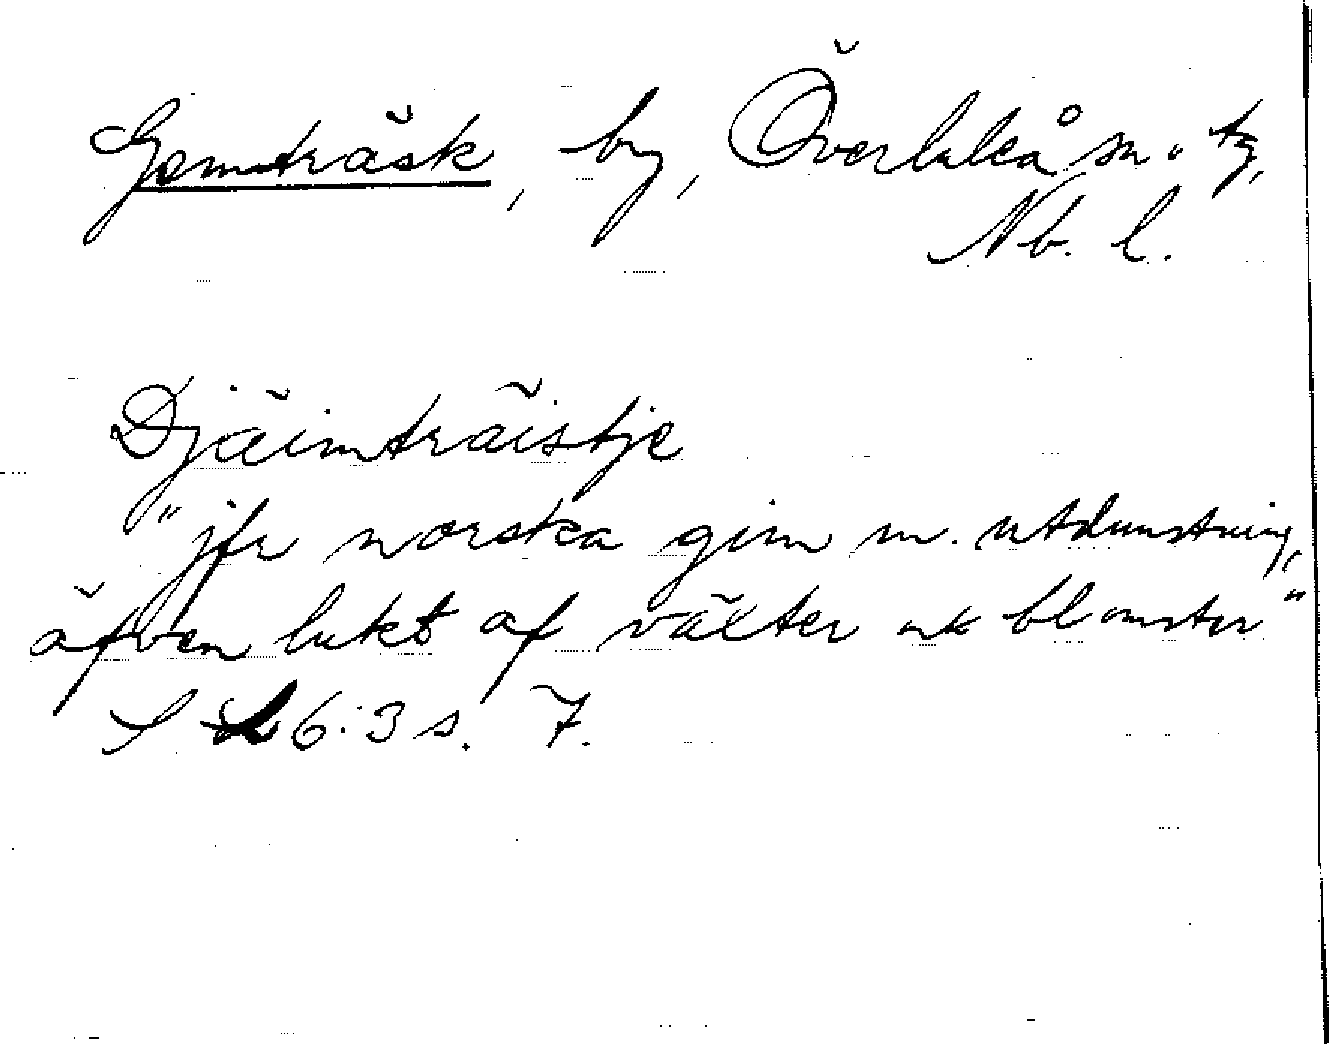 Gemträsk, by, Överluleå sn o tg,
Nb. l.
Djäimträistje
"jfr norska gim m. utdunstning,
äfven lukt af växter ock blomster"
S 6:3 s. 7.